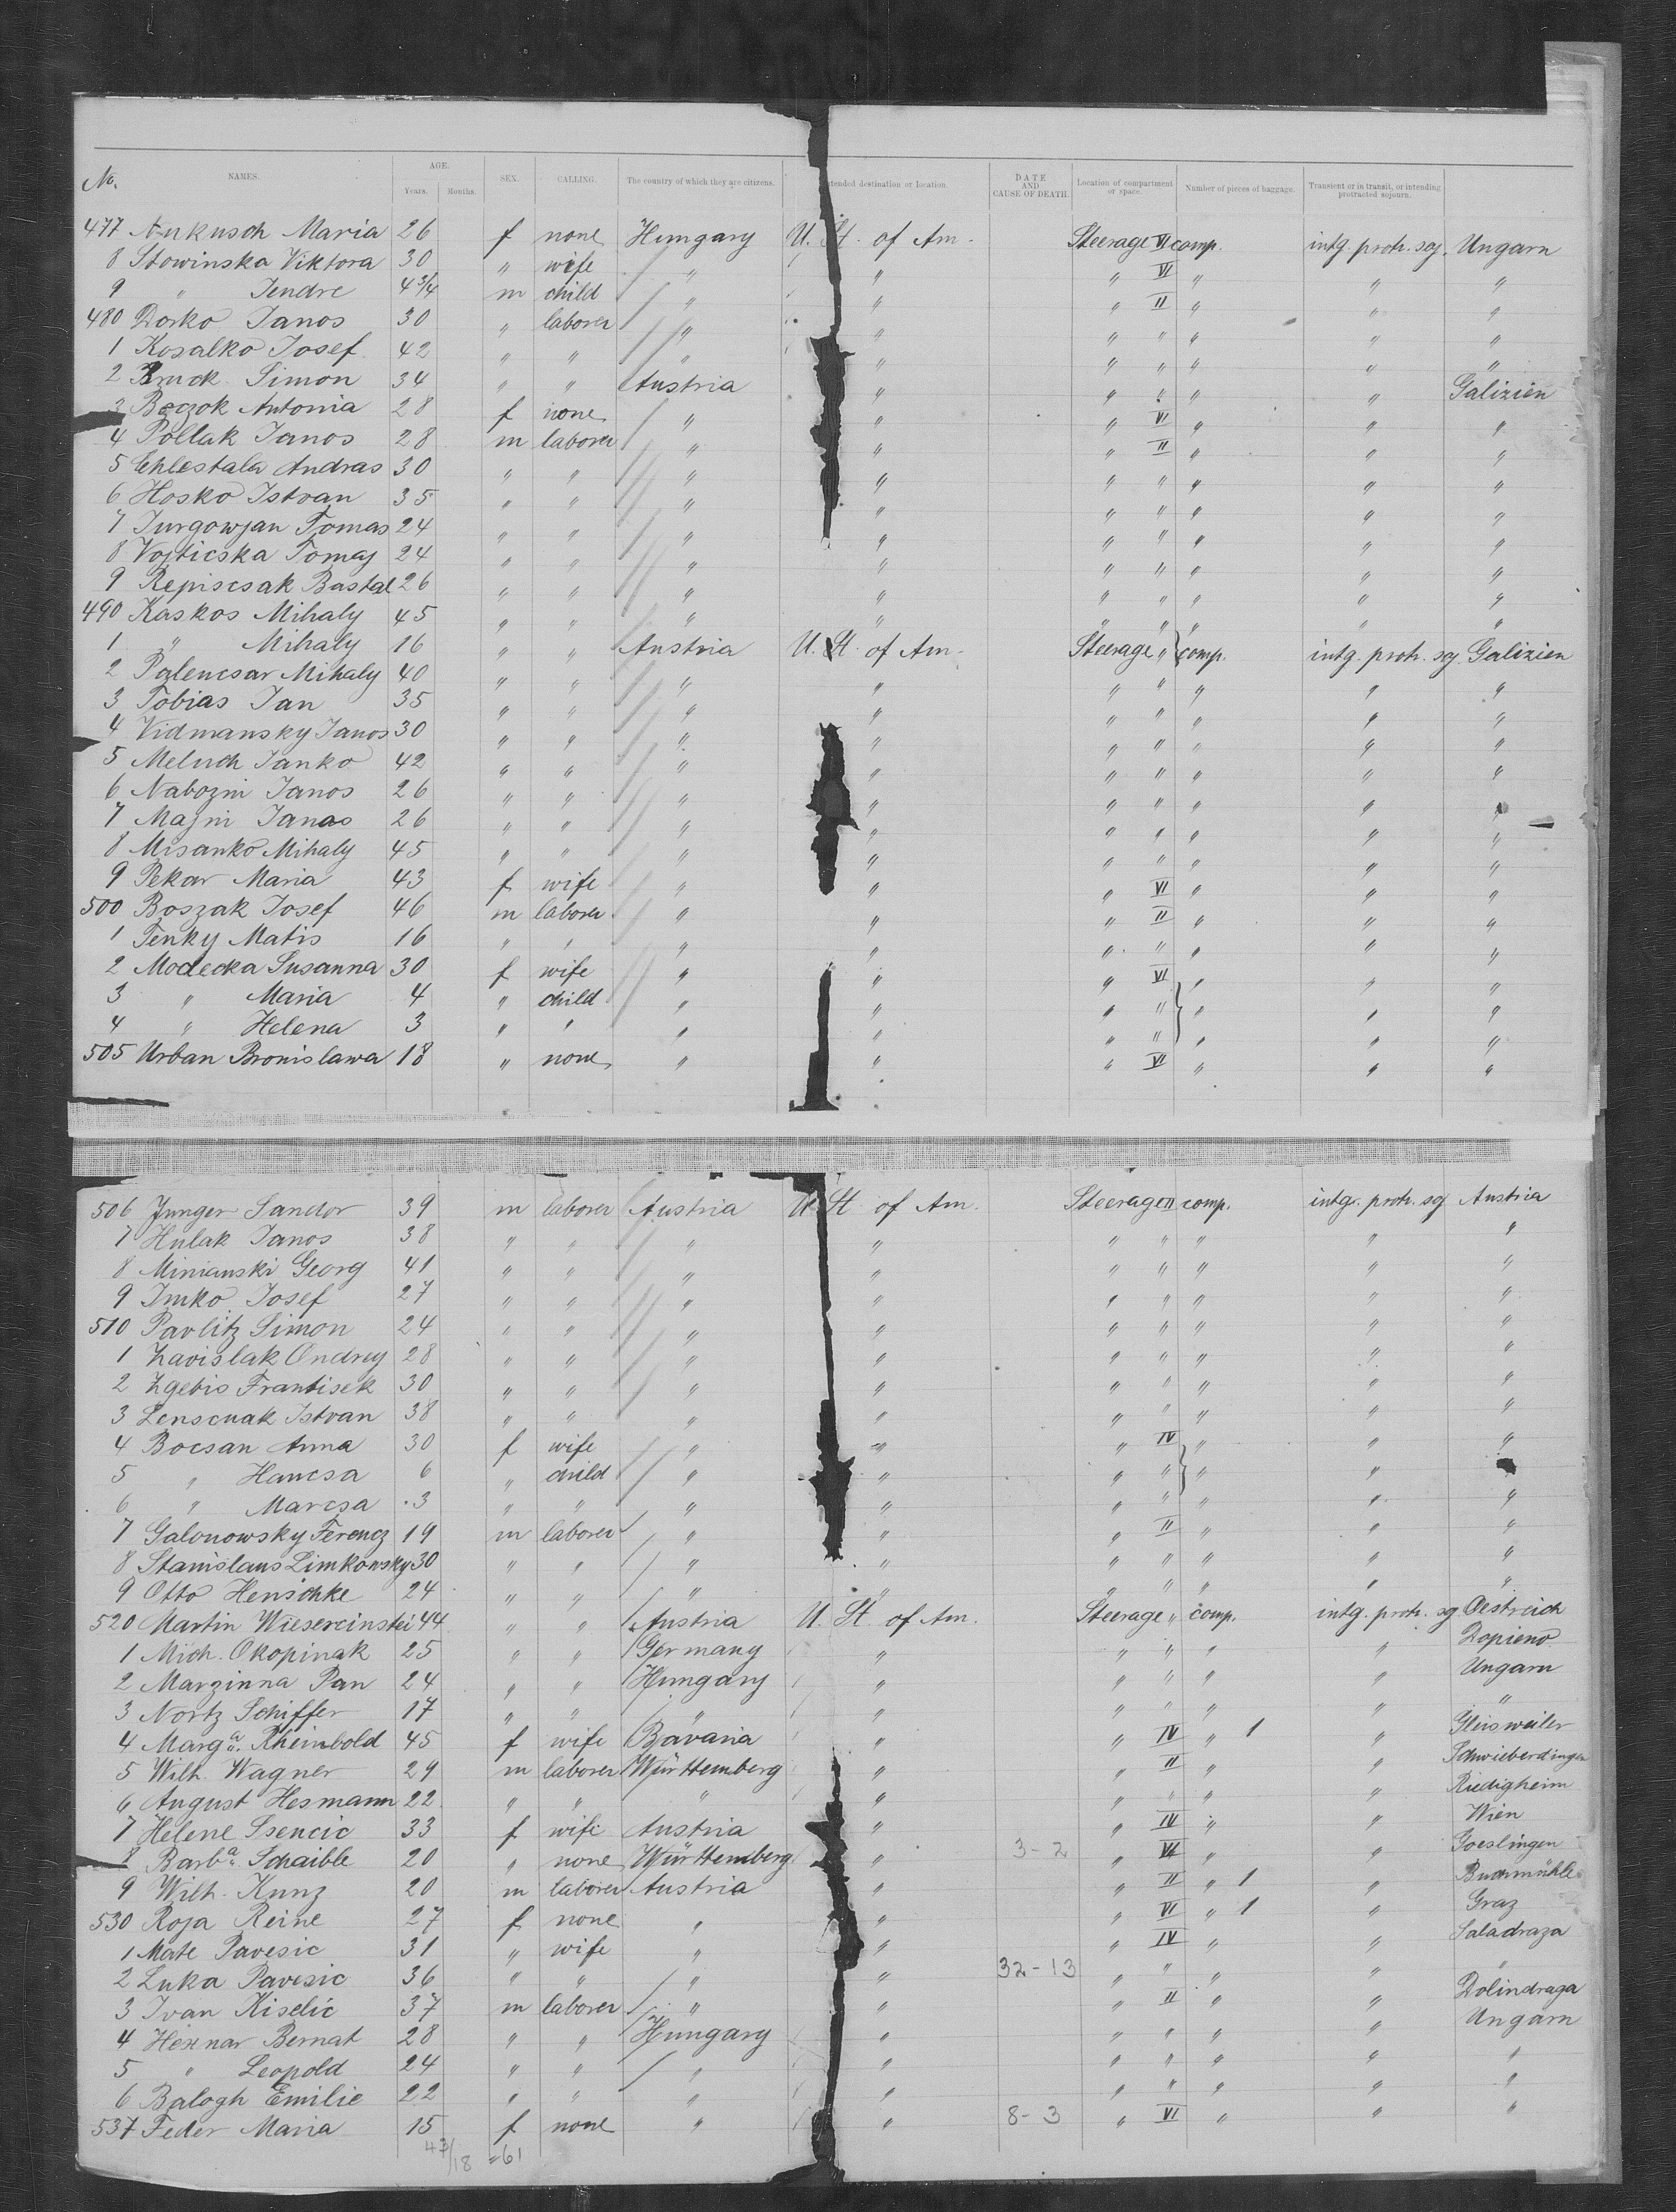 No. NAMES. AGE. Years. Months. SEX. CALLING. The country of which they are citizens. Intended destination or location. DATE AND CAUSE OF DEATH. Location of compartment or space. Number of pieces of baggage. Transient or in transit, or intending protracted sojourn.
477 Maria 26 f none Hungary U. St. of Am. Steerage VI comp. intg. protr. soj. Ungarn
8 Stowinska Viktora 30 " wife " " " VI " " "
9 " Jendre 4 3/4 m child " " " II " " "
480 Dorko Janos 30 " laborer " " " " " " "
1 Kosalko Josef 42 " " " " " " " " "
2 Simon 34 " " Austria " " " " " Galizien
3 Boczok Antonia 28 f none " " " VI " " "
4 Pollak Janos 28 m laborer " " " II " " "
5 Chlestala Andras 30 " " " " " " " " "
6 Hosko Istvan 35 " " " " " " " " "
7 Jurgowjan Tomas 24 " " " " " " " " "
8 Vojticska Tomas 24 " " " " " " " " "
9 Repiscsak Bastal 26 " " " " " " " " "
490 Kaskos Mihaly 45 " " " " " " " " "
1 " Mihaly 16 " " Austria U. St. of Am. Steerage " comp. intg. protr. soj Galizien
2 Palencsar Mihaly 40 " " " " " " " " "
3 Tobias Jan 35 " " " " " " " " "
4 Vidmansky Janos 30 " " " " " " " " "
5 Meluch Janko 42 " " " " " " " " "
6 Nabozni Janos 26 " " " " " " " " "
7 Majni Janos 26 " " " " " " " " "
8 Misanko Mihaly 45 " " " " " " " " "
9 Pekar Maria 43 f wife " " " VI " " "
500 Boszak Josef 46 m laborer " " " II " " "
1 Tenky Matis 16 " " " " " " " " "
2 Modecka Susanna 30 f wife " " " VI " " "
3 " Maria 4 " child " " " " " " "
4 " Helena 3 " " " " " " " " "
505 Urban Bronislawa 18 " none " " " VI " " "
506 Junger Sandor 39 m laborer Austria U. St. of Am. Steerage II comp. intg. protr. soj Austria
7 Hulak Janos 38 " " " " " " " " "
8 Minianski Georg 41 " " " " " " " " "
9 Imko Josef 27 " " " " " " " " "
510 Pavlitz Simon 24 " " " " " " " " "
1 Zavislak Ondrey 28 " " " " " " " " "
2 Zgebis Frantisek 30 " " " " " " " " "
3 Lenscnak Istvan 38 " " " " " " " " "
4 Bocsan Anna 30 f wife " " " IV " " "
5 " Hancsa 6 " child " " " " " "
6 " Marcsa 3 " " " " " " " " "
7 Galonowsky Ferencz 19 m laborer " " " II " " "
8 Stanislaus Limkowsky 30 " " " " " " " " "
9 Otto Henschke 24 " " " " " " " " "
520 Martin 44 " " Austria U. St. of Am. Steerage " comp. intg. protr. soj Oestreich
1 Mich. Okopinak 25 " " Germany " " " " " Dopieno
2 Marzinna Pan 24 " " Hungary " " " " " Ungarn
3 Nortz Schiffer 17 " " " " " " " " "
4 Marga. Rheinbold 45 f wife Bavaria " " IV " 1 " Gleisweiler
5 Wilh. Wagner 29 m laborer Württemberg " " II " " Schwieberdingen
6 August Hesmann 22 " " " " " " " " Riedigheim
7 Helene Ssencic 33 f wife Austria " " IV " " Wien
8 Barba. Schaible 20 " none Württemberg " 3-2 " VI " " Goeslingen
9 Wilh. Kunz 20 m laborer Austria " " II " 1 " Buchmühle
530 Roja Reine 27 f none " " " VI " 1 " Graz
1 Mate Pavesic 31 " wife " " " IV " " Saladraza
2 Luka Pavesic 36 " " " " 32-13 " " " " "
3 Ivan Kiselic 37 m laborer " " " II " " Dolindraga
4 Hexnar Bernat 28 " " Hungary " " " " " Ungarn
5 " Leopold 24 " " " " " " " " "
6 Balogh Emilie 22 " " " " " " " " "
537 Feder Maria 15 f none " " 8-3 " VI " " "
43/18 =61